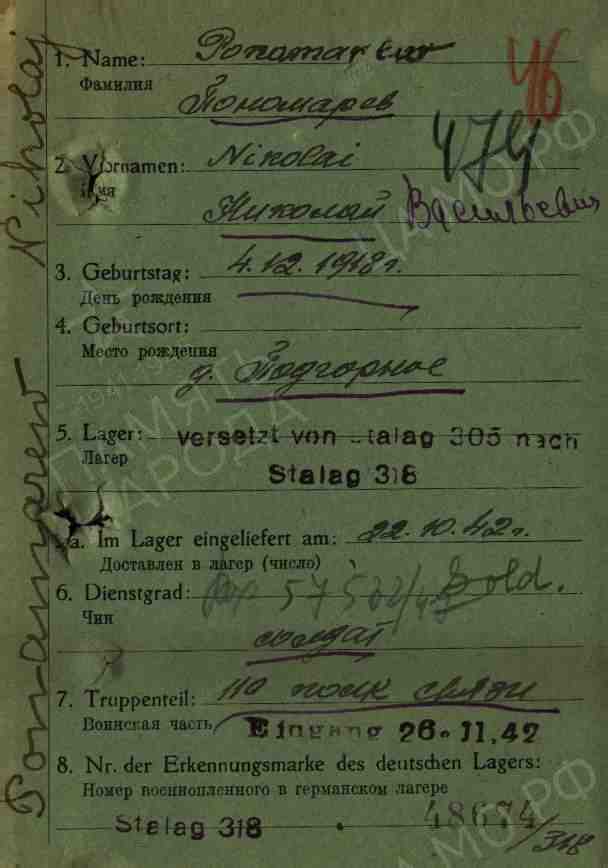 Ponomarew Nikolaj
46
1. Name: Ponomarew
Фамилия
Пономарев
474
2. Vornamen: Nikolai
Имя
Николай Васильевич
3. Geburtstag: 4.12.1918 г.
День рождения
4. Geburtsort:
Место рождения
д. Подгорное
5. Lager: versetzt von Stalag 305 nach
Лагер
Stalag 318
5a. Im Lager eingeliefert am: 22.10.42 г.
Доставлен в лагер (число)
6. Dienstgrad: Sold.
Чин
солдат
7. Truppenteil: 110 полк связи
Воинская часть
Eingang 26.11.42
8. Nr. der Erkennungsmarke des deutschen Lagers:
Номер военнопленного в германском лагере
48674
Stalag 318 /318
ПАМЯТЬ
НАРОДА
ЦАМО.РФ